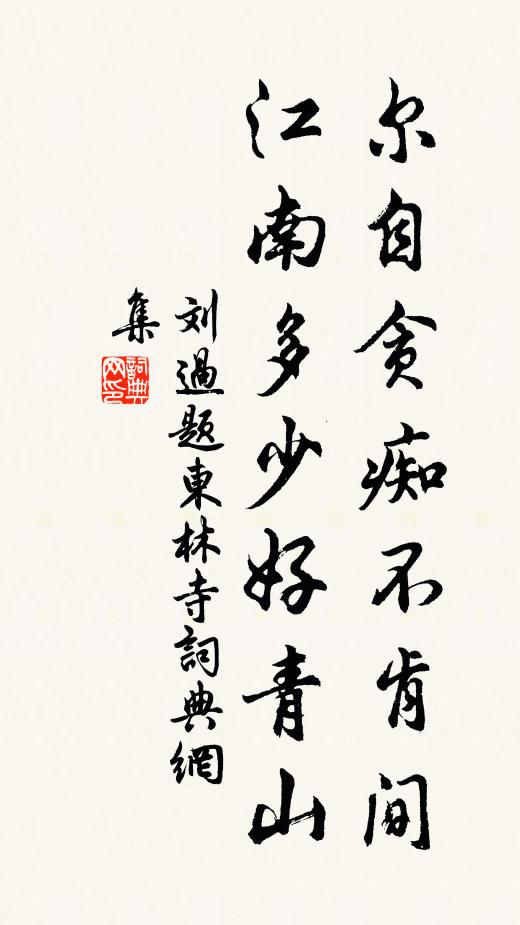 尔自贪痴不肯间
江南多少好青山
刘過題東林寺詞典網
集
詞典网印